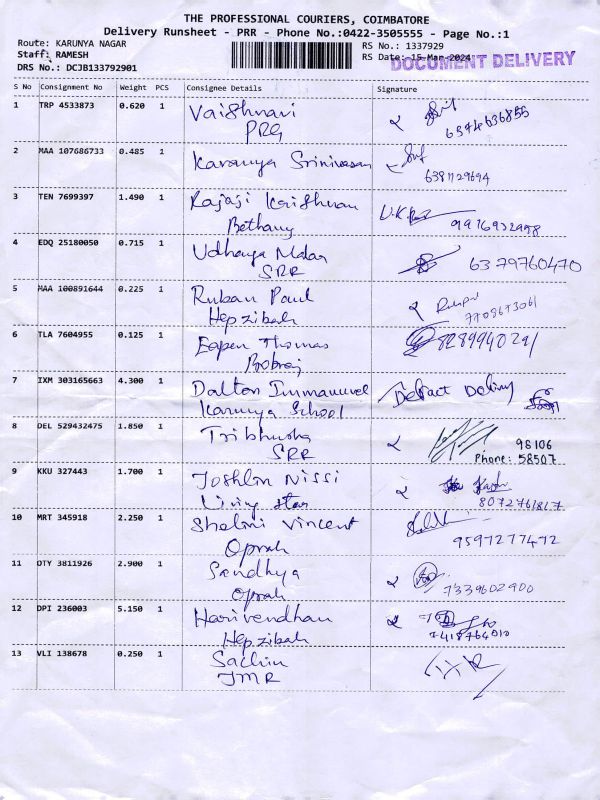 THE PROFESSIONAL COURIERS, COIMBATORE
Delivery Runsheet - PRR - Phone No.:0422-3505555 - Page No.:1
Route: KARUNYA NAGAR RS No.: 1337929
Staff: RAMESH RS Date: 15-Mar-2024
DOCUMENT DELIVERY
DRS No.: DCJB133792901
S No Consignment No Weight PCS Consignee Details Signature
1 TRP 4533873 0.620 1 Vaishnavi
PRG 6374636855
2 MAA 107686733 0.485 1 Karunya Srinivasan
6381129694
3 TEN 7699397 1.490 1 Rajaji Krishnan
Bethany 9976932998
4 EDQ 25180050 0.715 1 Udhaya Malar 6379760470
SRR
5 MAA 100891644 0.225 1 Ruban Paul
Hepzibah 7708673061
6 TLA 7604955 0.125 1 Eapen Thomas 8289940291
7 IXM 303165663 4.300 1 Dalton Immanuvel
Karunya School
8 DEL 529432475 1.850 1 Tribhusha 98106
SRR Phone: 58507
9 KKU 327443 1.700 1 Joshlin Nissi
Living Star 8072761817
10 MRT 345918 2.250 1 Shalini Vincent
Oprah 9597277472
11 OTY 3811926 2.900 1 Sandhya
Oprah 7339602900
12 DPI 236003 5.150 1 Harivendhan
Hepzibah 7418764010
13 VLI 138678 0.250 1 Sachin
JMR